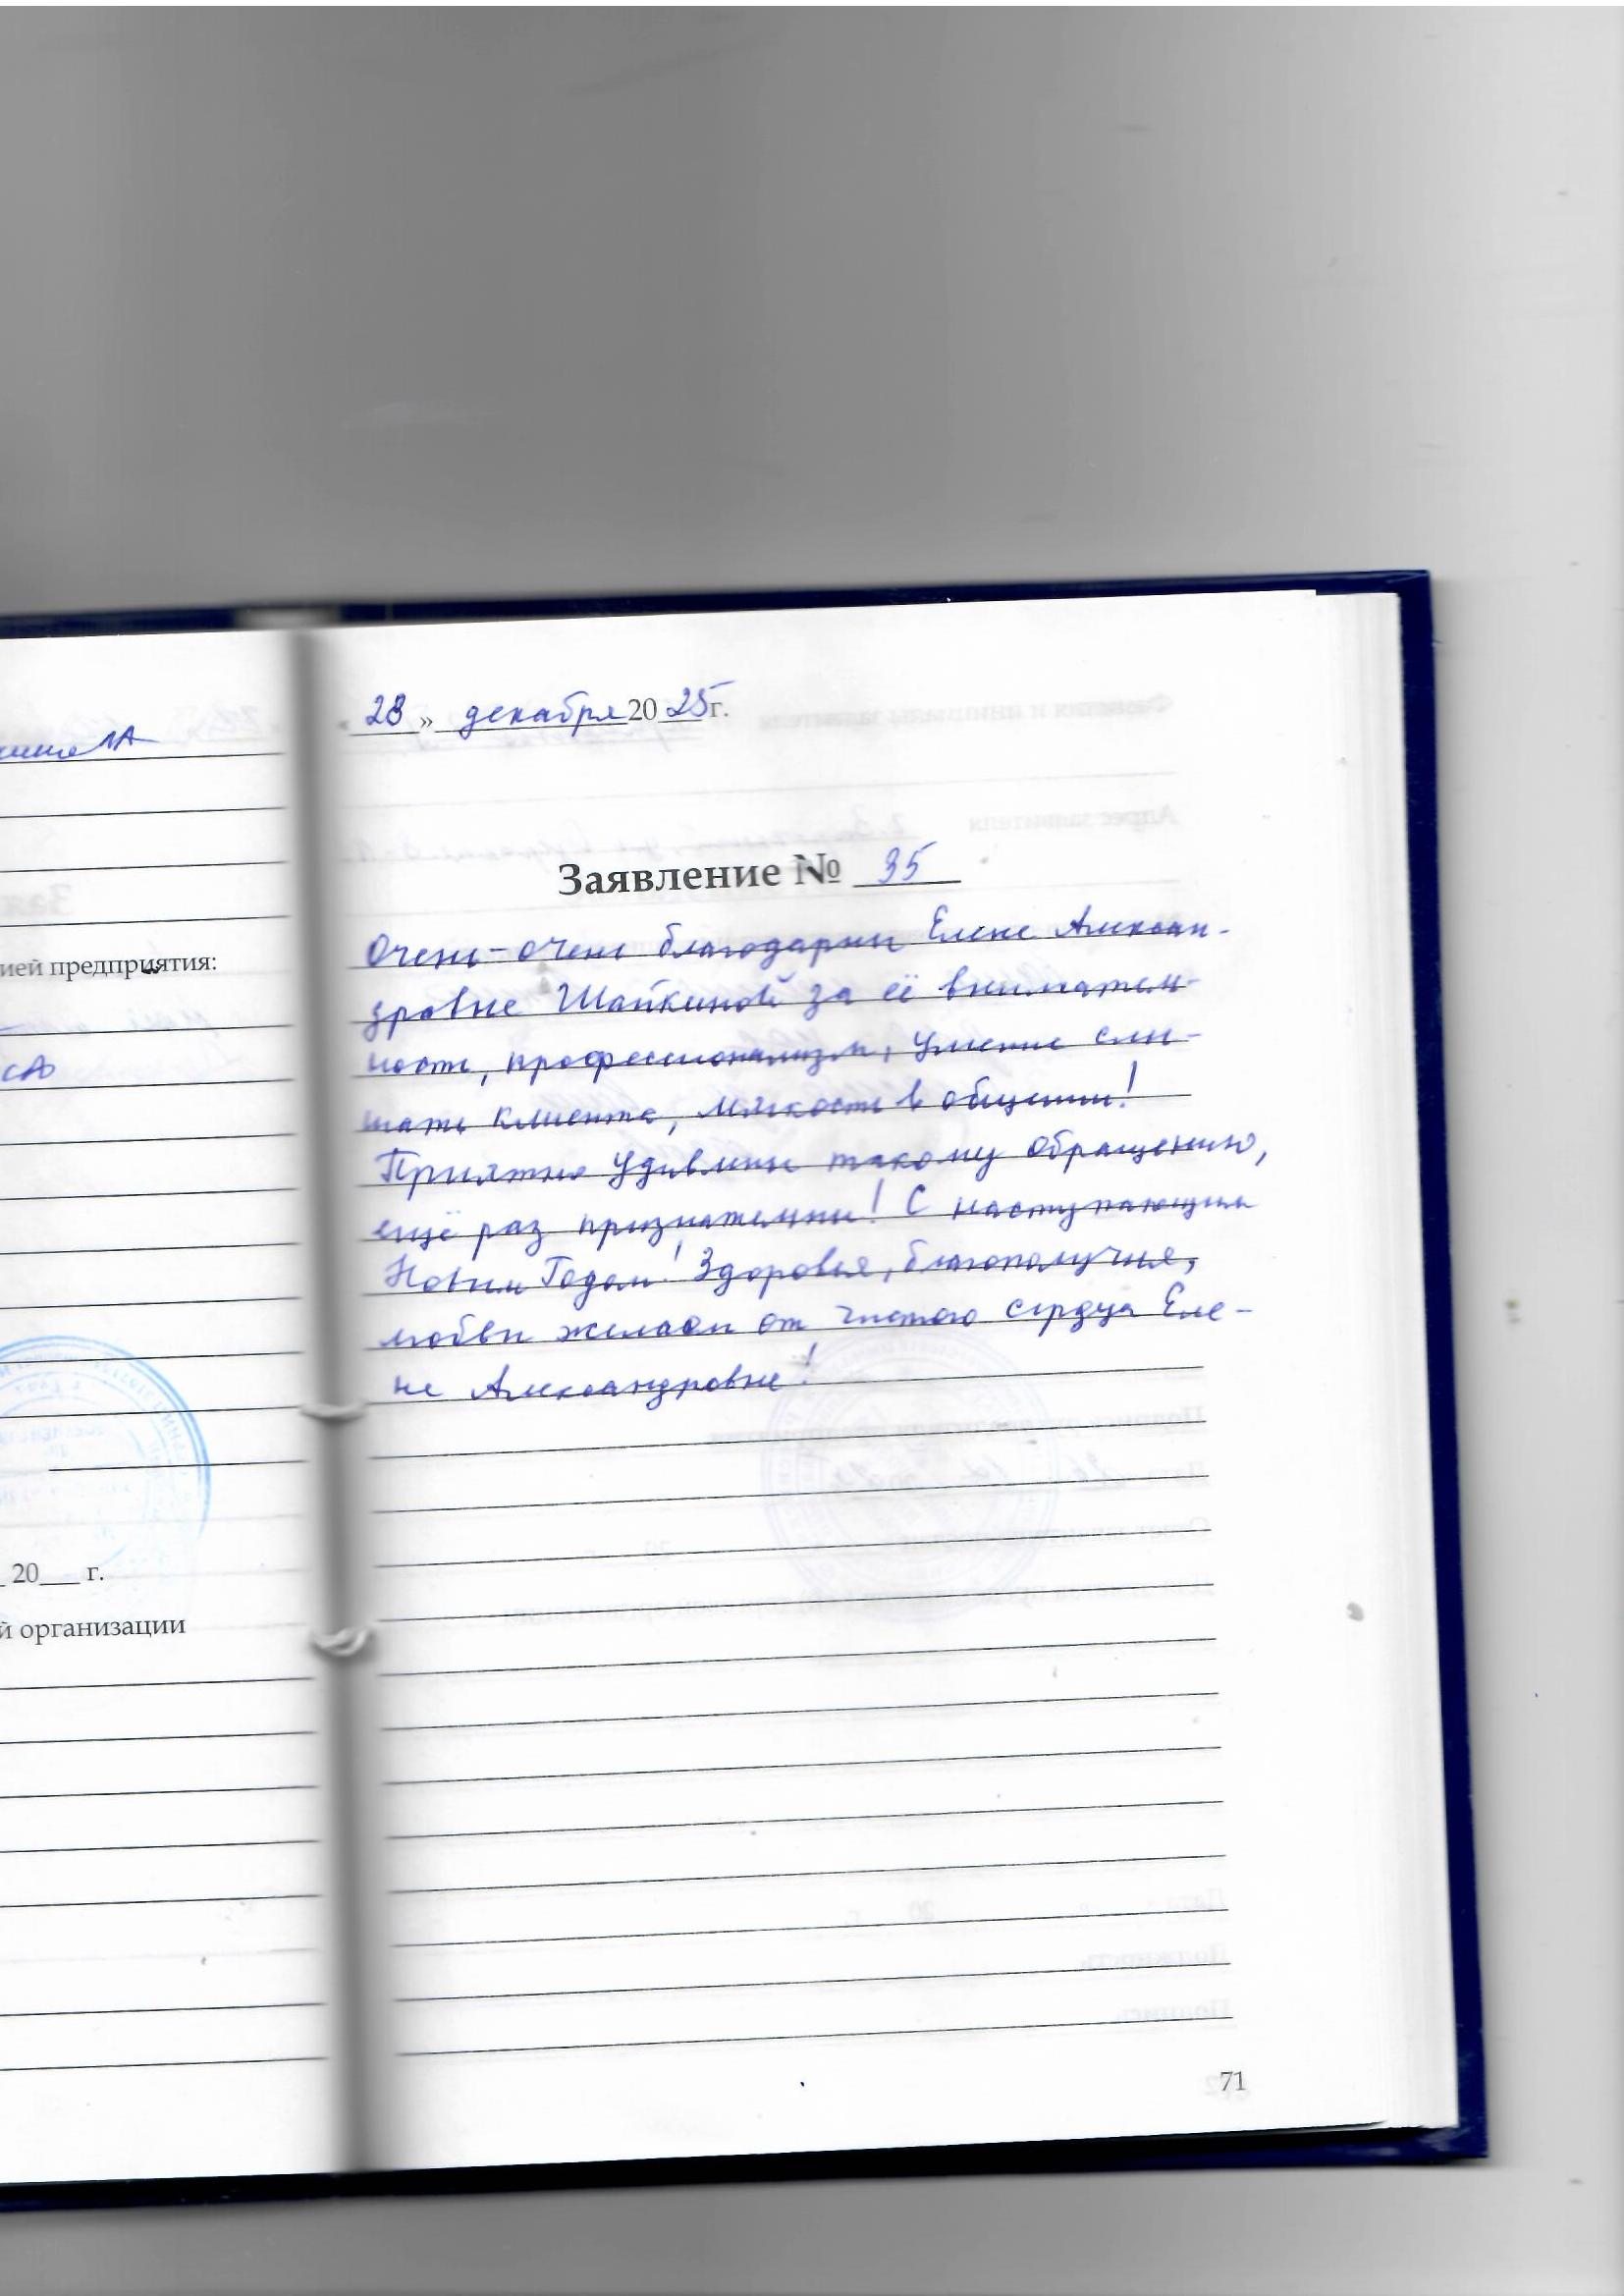 28 » декабря 20 25 г.
Заявление № 35
Очень-очень благодарны Елене Алексан-
дровне Шапкиной за её вниматель-
ность, профессионализм, умение слы-
шать клиента, мягкость в общении!
Приятно удивлены такому обращению,
ещё раз признательны! С наступающим
Новым Годом! Здоровья, благополучия,
любви желаем от чистого сердца Еле-
не Александровне!
71
ией предприятия:
20 г.
й организации